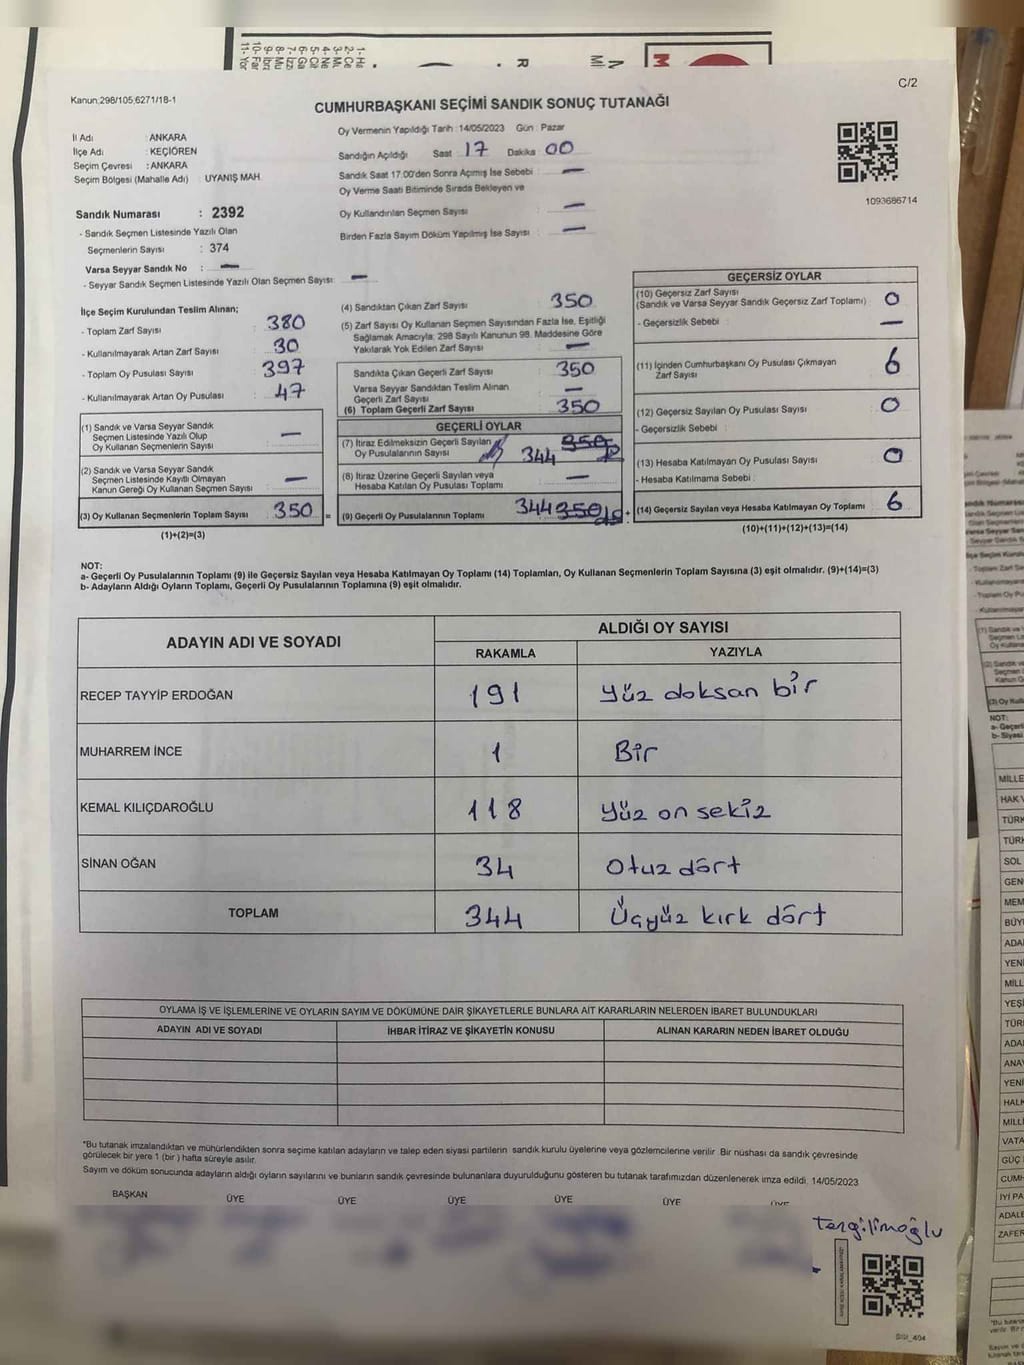 C/2
Kanun;298/105,6271/18-1
CUMHURBAŞKANI SEÇİMİ SANDIK SONUÇ TUTANAĞI
İl Adı : ANKARA
İlçe Adı : KEÇİÖREN
Seçim Çevresi : ANKARA
Seçim Bölgesi (Mahalle Adı) : UYANIŞ MAH.
Oy Vermenin Yapıldığı Tarih :14/05/2023 Gün : Pazar
Sandığın Açıldığı Saat 17 Dakika 00
Sandık Saat 17.00'den Sonra Açılmış İse Sebebi : —
Oy Verme Saati Bitiminde Sırada Bekleyen ve
Oy Kullandırılan Seçmen Sayısı : —
Birden Fazla Sayım Döküm Yapılmış İse Sayısı : —
1093686714
Sandık Numarası : 2392
- Sandık Seçmen Listesinde Yazılı Olan
Seçmenlerin Sayısı : 374
Varsa Seyyar Sandık No : —
- Seyyar Sandık Seçmen Listesinde Yazılı Olan Seçmen Sayısı: —
İlçe Seçim Kurulundan Teslim Alınan;
- Toplam Zarf Sayısı : 380
- Kullanılmayarak Artan Zarf Sayısı : 30
- Toplam Oy Pusulası Sayısı : 397
- Kullanılmayarak Artan Oy Pusulası : 47
(1) Sandık ve Varsa Seyyar Sandık
Seçmen Listesinde Yazılı Olup
Oy Kullanan Seçmenlerin Sayısı : —
(2) Sandık ve Varsa Seyyar Sandık
Seçmen Listesinde Kayıtlı Olmayan
Kanun Gereği Oy Kullanan Seçmen Sayısı : —
(3) Oy Kullanan Seçmenlerin Toplam Sayısı : 350 =
(1)+(2)=(3)
(4) Sandıktan Çıkan Zarf Sayısı : 350
(5) Zarf Sayısı Oy Kullanan Seçmen Sayısından Fazla İse, Eşitliği
Sağlamak Amacıyla; 298 Sayılı Kanunun 98. Maddesine Göre
Yakılarak Yok Edilen Zarf Sayısı : —
Sandıkta Çıkan Geçerli Zarf Sayısı : 350
Varsa Seyyar Sandıktan Teslim Alınan
Geçerli Zarf Sayısı : —
(6) Toplam Geçerli Zarf Sayısı : 350
GEÇERLİ OYLAR
(7) İtiraz Edilmeksizin Geçerli Sayılan 350
Oy Pusulalarının Sayısı : 344
(8) İtiraz Üzerine Geçerli Sayılan veya
Hesaba Katılan Oy Pusulası Toplamı : —
(9) Geçerli Oy Pusulalarının Toplamı : 344 350 +
GEÇERSİZ OYLAR
(10) Geçersiz Zarf Sayısı
(Sandık ve Varsa Seyyar Sandık Geçersiz Zarf Toplamı) : 0
- Geçersizlik Sebebi : —
(11) İçinden Cumhurbaşkanı Oy Pusulası Çıkmayan
Zarf Sayısı : 6
(12) Geçersiz Sayılan Oy Pusulası Sayısı : 0
- Geçersizlik Sebebi :
(13) Hesaba Katılmayan Oy Pusulası Sayısı : 0
- Hesaba Katılmama Sebebi :
(14) Geçersiz Sayılan veya Hesaba Katılmayan Oy Toplamı : 6
(10)+(11)+(12)+(13)=(14)
NOT:
a- Geçerli Oy Pusulalarının Toplamı (9) ile Geçersiz Sayılan veya Hesaba Katılmayan Oy Toplamı (14) Toplamları, Oy Kullanan Seçmenlerin Toplam Sayısına (3) eşit olmalıdır. (9)+(14)=(3)
b- Adayların Aldığı Oyların Toplamı, Geçerli Oy Pusulalarının Toplamına (9) eşit olmalıdır.
ADAYIN ADI VE SOYADI ALDIĞI OY SAYISI
RAKAMLA YAZIYLA
RECEP TAYYİP ERDOĞAN 191 Yüz doksan bir
MUHARREM İNCE 1 Bir
KEMAL KILIÇDAROĞLU 118 Yüz on sekiz
SİNAN OĞAN 34 Otuz dört
TOPLAM 344 Üçyüz kırk dört
OYLAMA İŞ VE İŞLEMLERİNE VE OYLARIN SAYIM VE DÖKÜMÜNE DAİR ŞİKAYETLERLE BUNLARA AİT KARARLARIN NELERDEN İBARET BULUNDUKLARI
ADAYIN ADI VE SOYADI İHBAR İTİRAZ VE ŞİKAYETİN KONUSU ALINAN KARARIN NEDEN İBARET OLDUĞU
*Bu tutanak imzalandıktan ve mühürlendikten sonra seçime katılan adayların ve talep eden siyasi partilerin sandık kurulu üyelerine veya gözlemcilerine verilir. Bir nüshası da sandık çevresinde
görülecek bir yere 1 (bir ) hafta süreyle asılır.
Sayım ve döküm sonucunda adayların aldığı oyların sayılarını ve bunların sandık çevresinde bulunanlara duyurulduğunu gösteren bu tutanak tarafımızdan düzenlenerek imza edildi. 14/05/2023
BAŞKAN ÜYE ÜYE ÜYE ÜYE ÜYE ÜYE
Tergilimoğlu